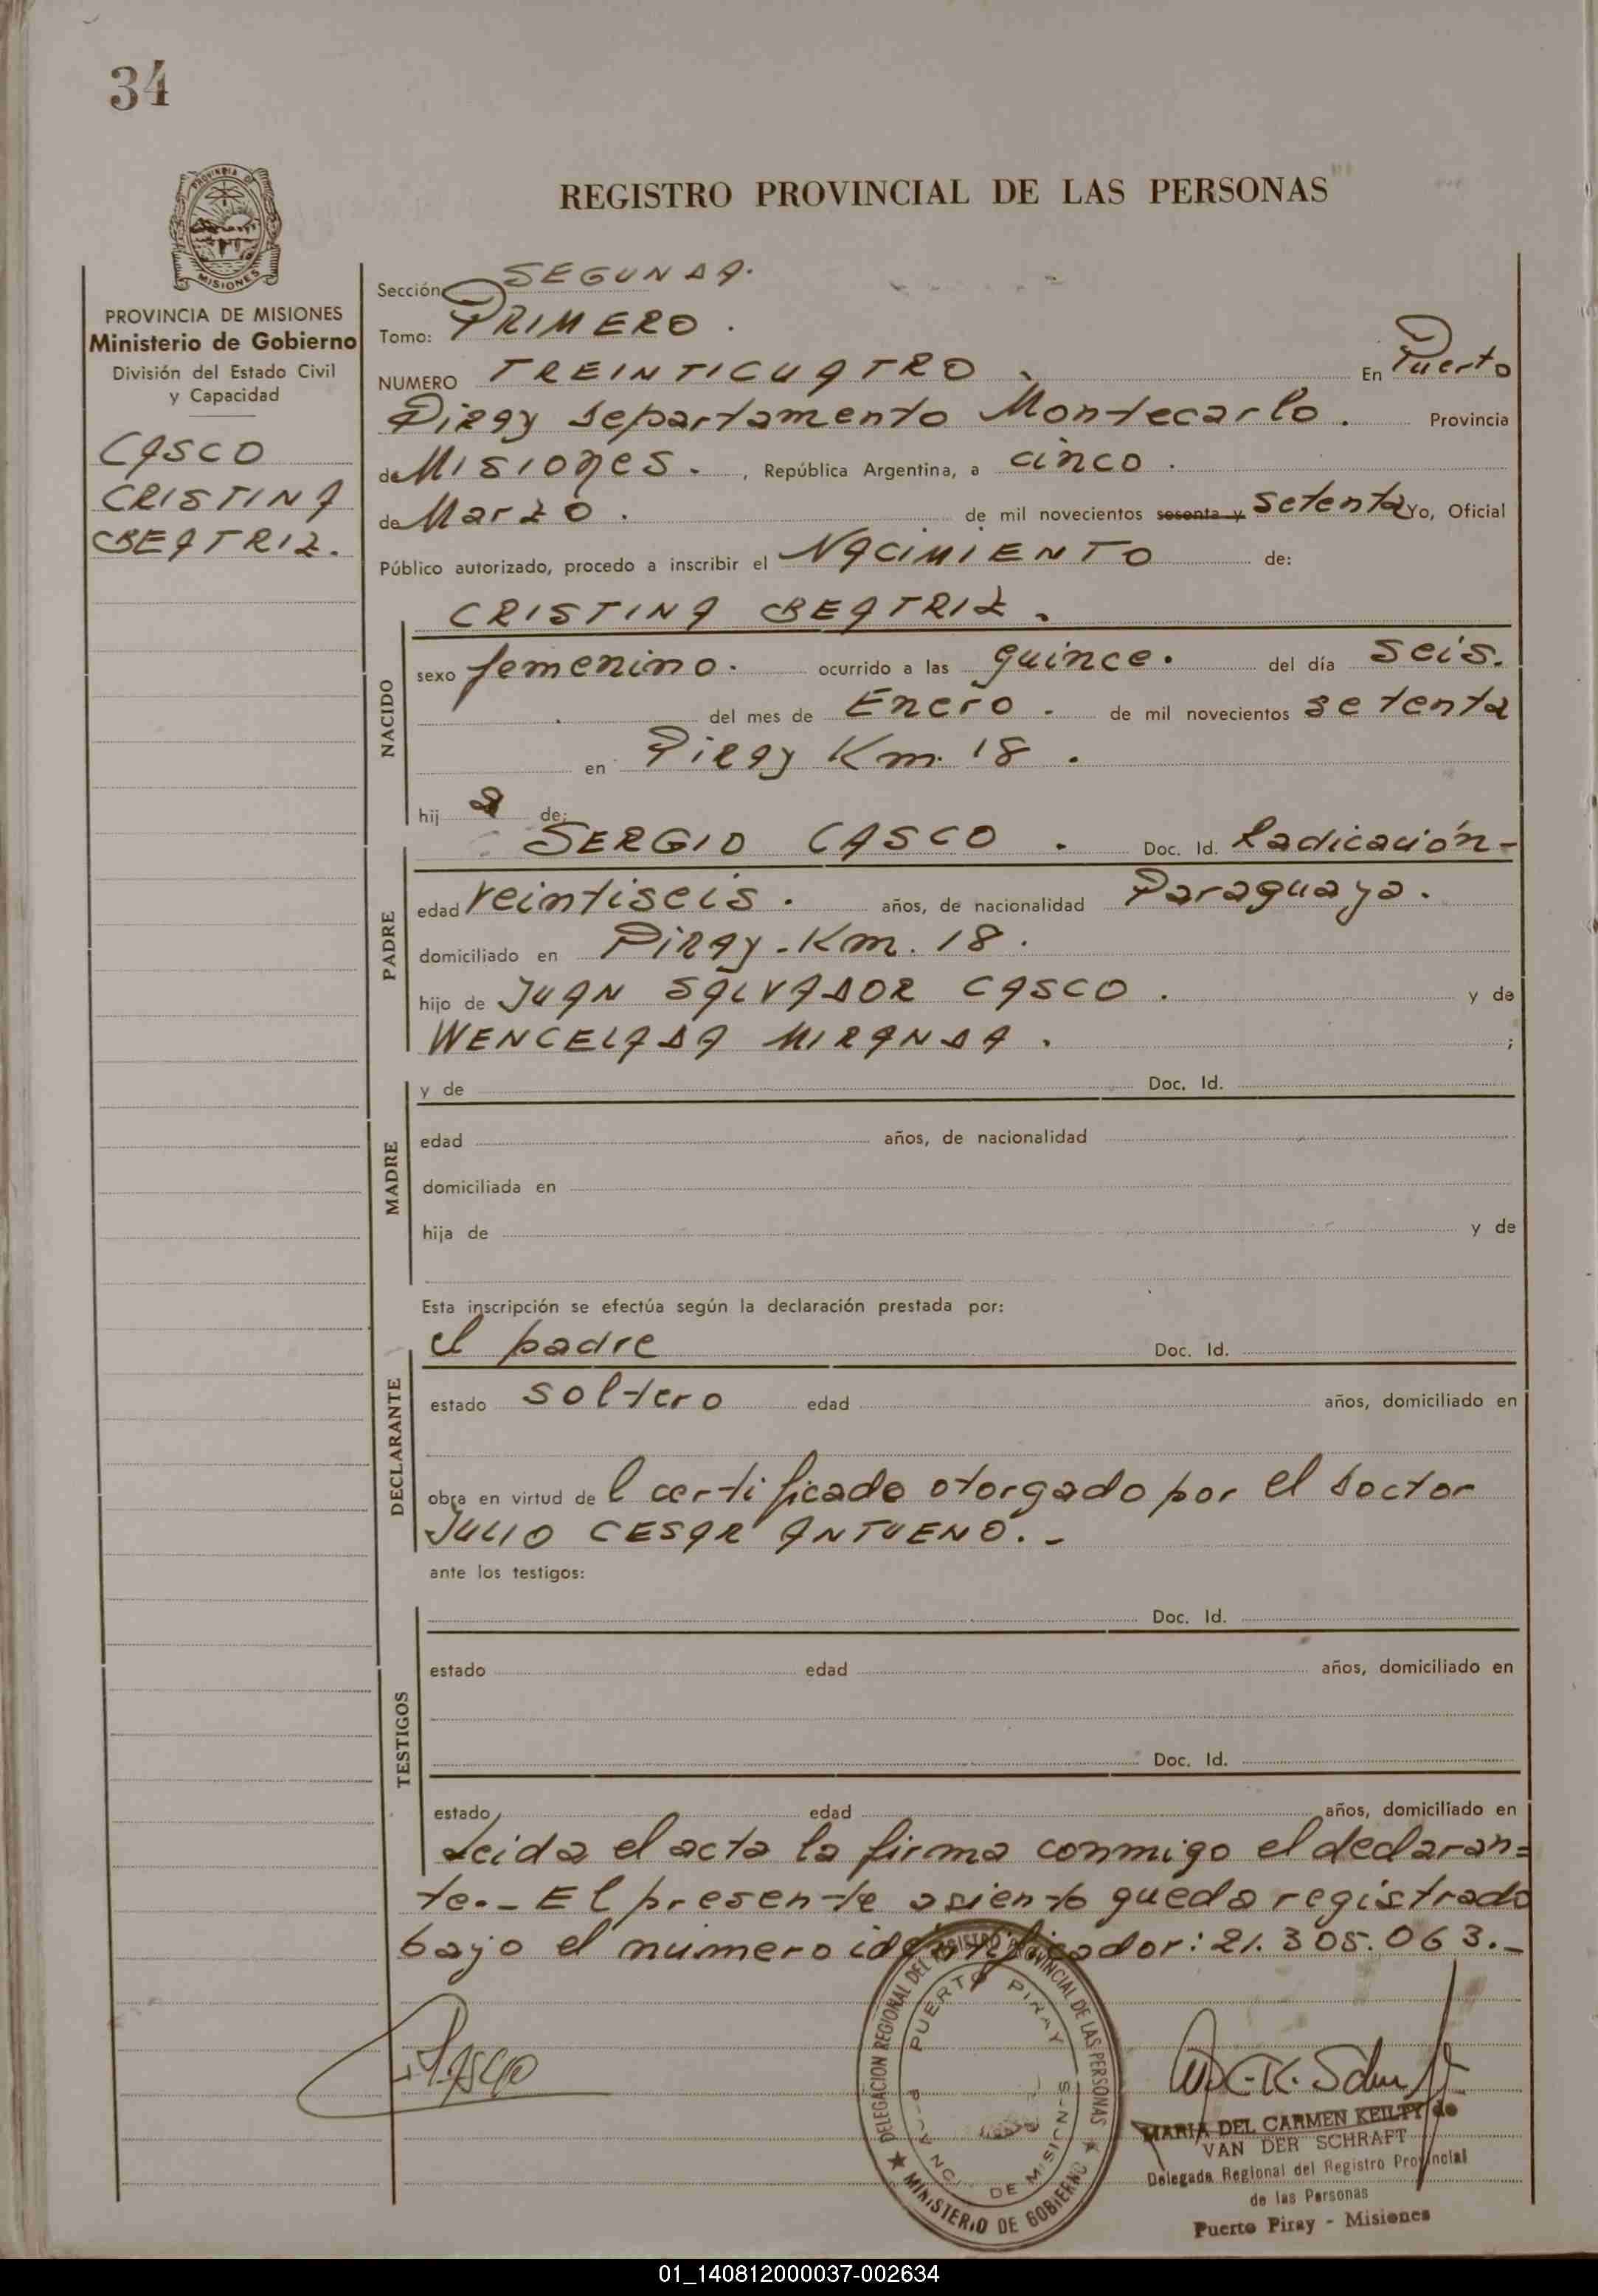 34
REGISTRO PROVINCIAL DE LAS PERSONAS
PROVINCIA DE MISIONES
Ministerio de Gobierno
División del Estado Civil
y Capacidad
CASCO
CRISTINA
BEATRIZ.
Sección SEGUNDA.
Tomo: PRIMERO.
NUMERO TREINTICUATRO. En Puerto
Piray departamento Montecarlo. Provincia
de Misiones. , República Argentina, a cinco.
de Marzo. de mil novecientos sesenta y setenta Yo, Oficial
Público autorizado, procedo a inscribir el NACIMIENTO de:
CRISTINA BEATRIZ.
NACIDO
sexo femenino. ocurrido a las quince. del día seis.
del mes de Enero. de mil novecientos setenta
en Piray Km. 18.
hij a de:
SERGIO CASCO. Doc. Id. Radicación-
PADRE
edad veintiseis. años, de nacionalidad Paraguaya.
domiciliado en Piray-Km. 18.
hijo de JUAN SALVADOR CASCO. y de
WENCELADA MIRANDA. ;
y de Doc. Id.
MADRE
edad años, de nacionalidad
domiciliada en
hija de y de
Esta inscripción se efectúa según la declaración prestada por:
el padre Doc. Id.
DECLARANTE
estado soltero edad años, domiciliado en
obra en virtud de l certificado otorgado por el doctor
JULIO CESAR ANTUENO.-
ante los testigos:
Doc. Id.
TESTIGOS
estado edad años, domiciliado en
Doc. Id.
estado edad años, domiciliado en
Leida el acta la firma conmigo el declaran=
te.- El presente asiento queda registrado
bajo el número identificador: 21.305.063.-
DELEGACION REGIONAL DEL REGISTRO PROVINCIAL DE LAS PERSONAS
PUERTO PIRAY
PROVINCIA DE MISIONES
MINISTERIO DE GOBIERNO
MARIA DEL CARMEN KEILTY de
VAN DER SCHRAFT
Delegada Regional del Registro Provincial
de las Personas
Puerto Piray - Misiones
01_140812000037-002634